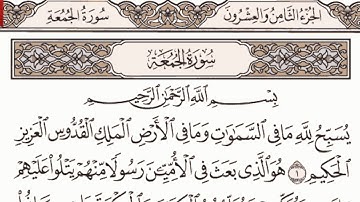 الجزء الثامن والعشرون
سورة الجمعة
سُورَةُ الجُمُعَةِ
بِسْمِ اللَّهِ الرَّحْمَٰنِ الرَّحِيمِ
يُسَبِّحُ لِلَّهِ مَا فِي السَّمَٰوَٰتِ وَمَا فِي الْأَرْضِ الْمَلِكِ الْقُدُّوسِ الْعَزِيزِ
الْحَكِيمِ ١ هُوَ الَّذِي بَعَثَ فِي الْأُمِّيِّۦنَ رَسُولًا مِّنْهُمْ يَتْلُوا عَلَيْهِمْ